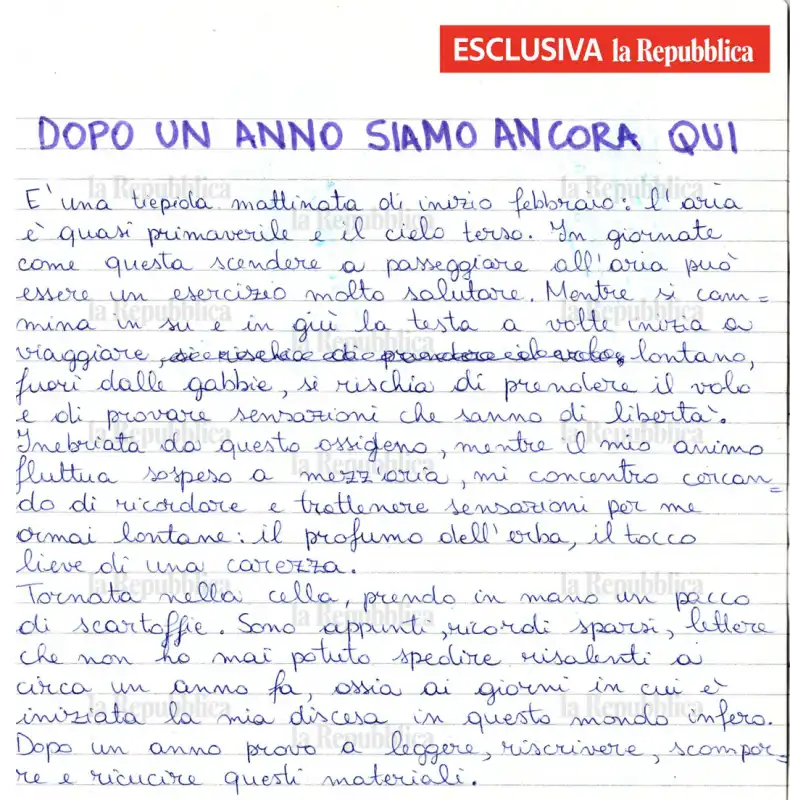 ESCLUSIVA la Repubblica
DOPO UN ANNO SIAMO ANCORA QUI
E' una tiepida mattinata di inizio febbraio: l'aria
è quasi primaverile e il cielo terso. In giornate
come questa scendere a passeggiare all'aria può
essere un esercizio molto salutare. Mentre si cam=
mina in su e in giù la testa a volte inizia a
viaggiare, si rischia di prendere il volo, lontano,
fuori dalle gabbie, si rischia di prendere il volo
e di provare sensazioni che sanno di libertà.
Inebriata da questo ossigeno, mentre il mio animo
fluttua sospeso a mezz'aria, mi concentro cercan=
do di ricordare e trattenere sensazioni per me
ormai lontane: il profumo dell'erba, il tocco
lieve di una carezza.
Tornata nella cella, prendo in mano un pacco
di scartoffie. Sono appunti, ricordi sparsi, lettere
che non ho mai potuto spedire risalenti a
circa un anno fa, ossia ai giorni in cui è
iniziata la mia discesa in questo mondo infero.
Dopo un anno provo a leggere, riscrivere, scompor=
re e ricucire questi materiali.